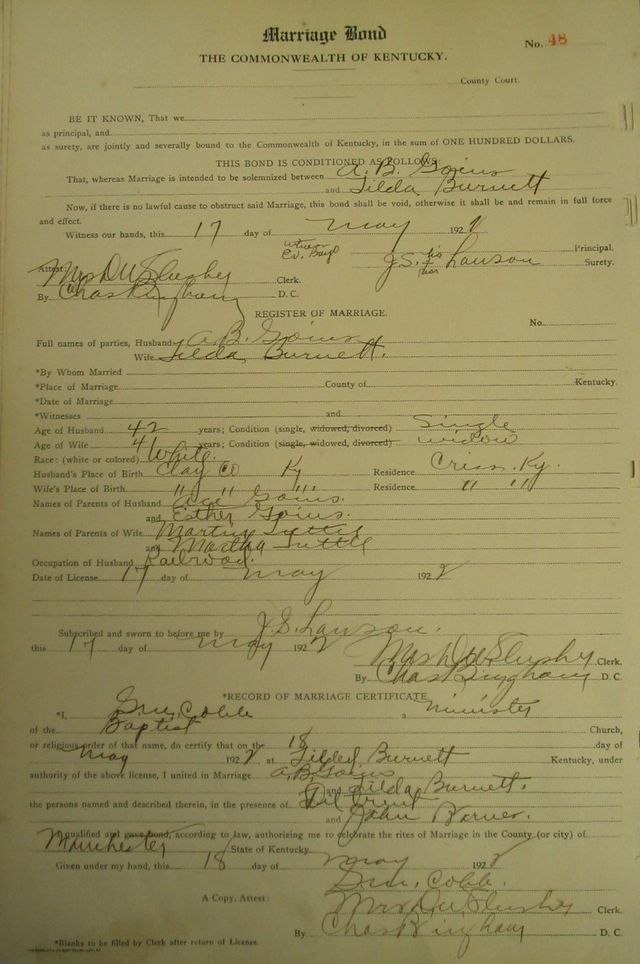 Marriage Bond
No. 48
THE COMMONWEALTH OF KENTUCKY.
County Court.
BE IT KNOWN, That we
as principal, and
as surety, are jointly and severally bound to the Commonwealth of Kentucky, in the sum of ONE HUNDRED DOLLARS.
THIS BOND IS CONDITIONED AS FOLLOWS:
That, whereas Marriage is intended to be solemnized between A. B. Goins
and Tilda Burnett
Now, if there is no lawful cause to obstruct said Marriage, this bond shall be void, otherwise it shall be and remain in full force
and effect.
Witness our hands, this 17 day of May 1922
Principal.
Attest: J. S. his Lawson Surety.
Mrs D W Slusher Clerk.
By Chas Bingham D. C.
REGISTER OF MARRIAGE.
No.
Full names of parties, Husband A. B. Goins
Wife Tilda Burnett.
*By Whom Married
*Place of Marriage County of Kentucky.
*Date of Marriage
*Witnesses and
Age of Husband 42 years; Condition (single, widowed, divorced) Single
Age of Wife 41 years; Condition (single, widowed, divorced) widow
Race: (white or colored) White.
Husband's Place of Birth Clay Co Ky Residence Ky.
Wife's Place of Birth " " " Residence " "
Names of Parents of Husband Goins.
and Esther Goins.
Names of Parents of Wife Martin Tuttle
and Martha Tuttle
Occupation of Husband Railroad.
Date of License 17 day of May 1922
Subscribed and sworn to before me by J. S. Lawson.
this 17 day of May 1922
Mrs D W Slusher Clerk.
By Chas Bingham D. C.
*RECORD OF MARRIAGE CERTIFICATE
*I, Cobb a minister
of the Baptist Church,
or religious order of that name, do certify that on the 18 day of
May 1922, at Tilded Burnett Kentucky, under
authority of the above license, I united in Marriage A. B. Goins
and Tilda Burnett.
the persons named and described therein, in the presence of
and John
I qualified and gave bond, according to law, authorizing me to celebrate the rites of Marriage in the County (or city) of
Manchester State of Kentucky.
Given under my hand, this 18 day of May 1922
Cobb.
A Copy, Attest: Mrs D W Slusher Clerk.
By Chas Bingham D. C.
*Blanks to be filled by Clerk after return of License.